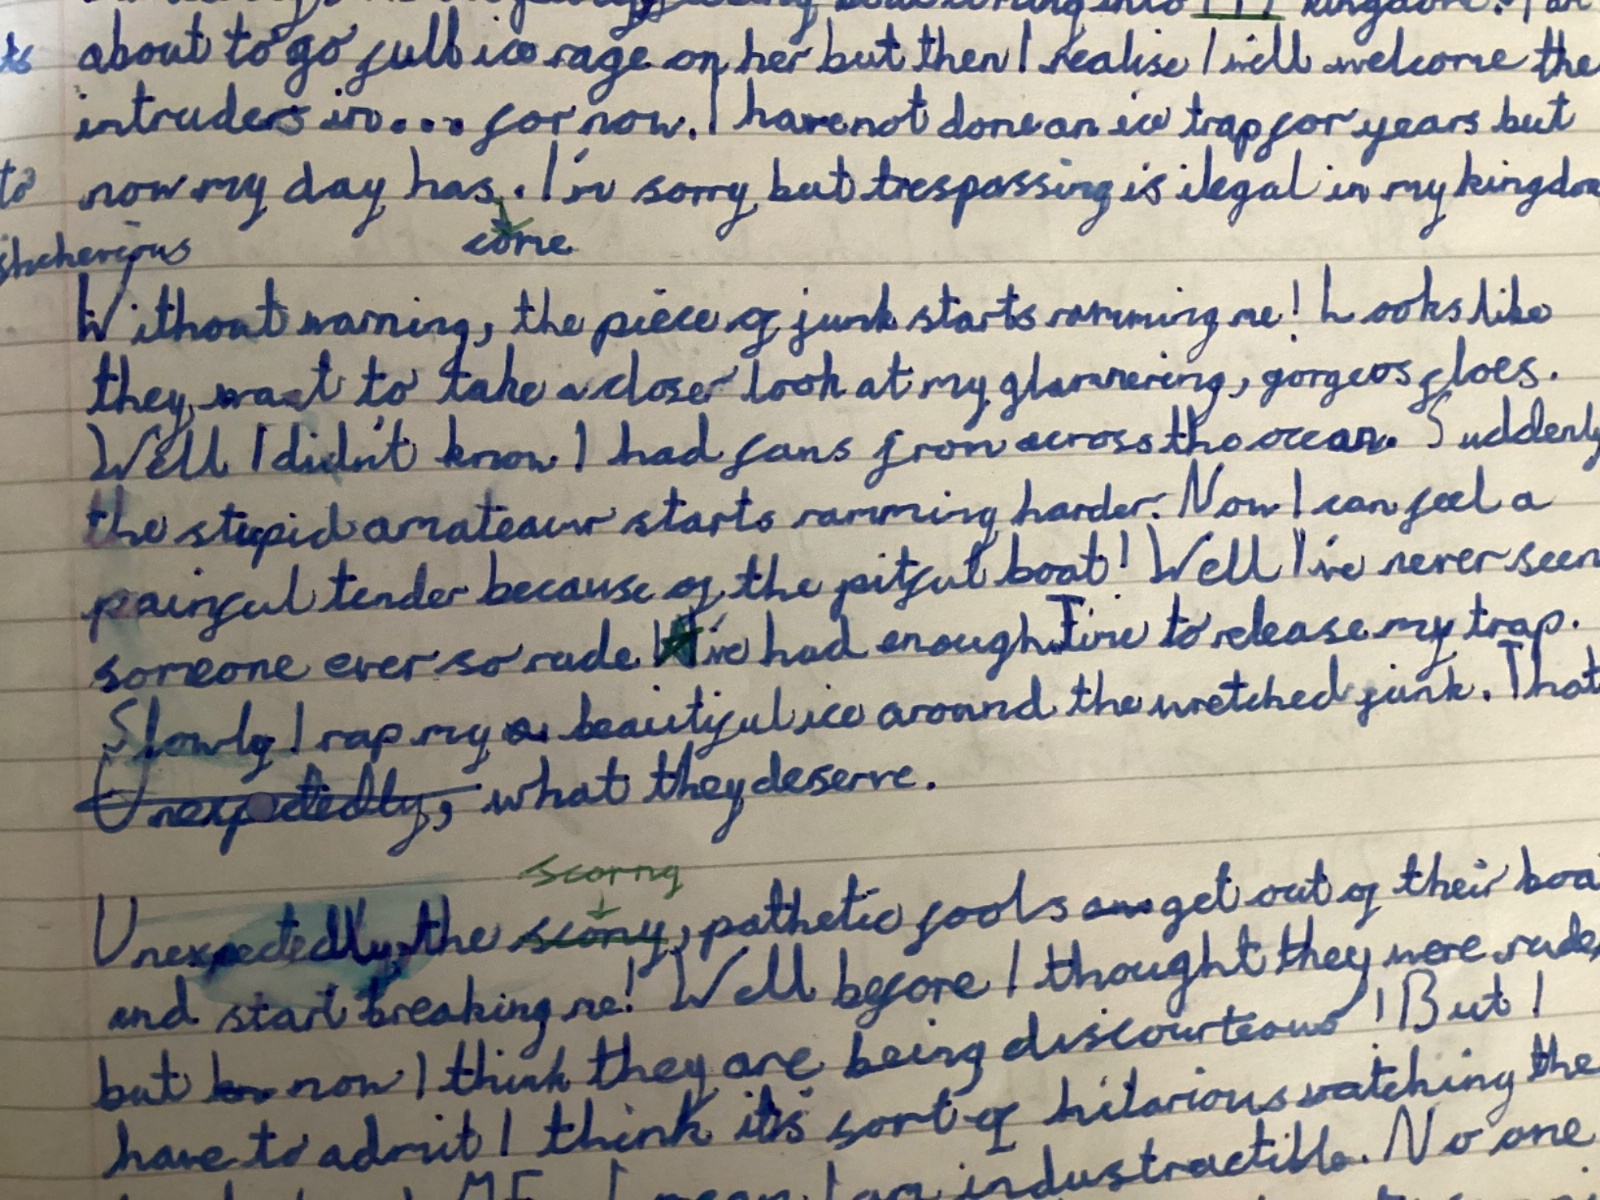 about to go full ice rage on her but then I realise I will welcome the
intruders in... for now. I have not done an ice trap for years but
now my day has. I'm sorry but trespassing is ilegal in my kingdom
come
Without warning, the piece of junk starts ramming me! Looks like
they want to take a closer look at my glammering, gorgeos floes.
Well I didn't know I had fans from across the ocean. Suddenly
the stupid amateaur starts ramming harder. Now I can feel a
painful tender because of the pitful boat! Well I've never seen
someone ever so rude I've had enough. Time to release my trap.
Slowly I rap my beautiful ice around the wretched junk. That
Unexpectedly, what they deserve.
scorng
Unexpectedly, the scony, pathetic fools get out of their boa
and start breaking me! Well before I thought they were rude,
but now I think they are being discourteous! But I
have to admit I think it's sort of hilarious watching the
ME. I mean I am industractible. No one